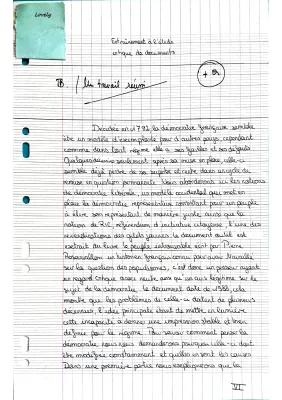 Lovely
Entraînement à l'étude
critique de documents
TB. / Un travail réussi
+
Décrétée en 1792, la démocratie française semble
être un modèle d'exemple pour d'autres pays, cependant
comme dans tout régime elle a ses failles et ses dégats
Quelques années seulement après sa mise en place, celle-ci
semble déjà perdre de sa superbe et entre dans un cycle de
remise en question permanente. Nous aborderons ici les notions
de démocratie libérale, un modèle occidental qui met en
place la démocratie représentative consistant pour un peuple
à élire son représentant de manière juste ainsi que la
notion de RIC, référendum d'initiative citoyenne, l'une des
revendications des gilets jaunes. Le document étudié est
extrait du livre le peuple introuvable écrit par Pierre
Rosanvallon, un historien français connu pour avoir travaillé
sur la question des populismes, c'est donc un penseur ayant
un regard critique assez neutre sur un
sujet de la démocratie. Le document date de 1988, cela
montre que les problèmes de celle-ci datent de plusieurs
décennies, l'idée principale étant de mettre en lumière
cette incapacité à donner une impression stable et bien
définie pour le régime. Pour savoir comment penser la
démocratie, nous nous demanderons pourquoi celle-ci doit
être modifiée constamment et quelles en sont les causes
Dans une première partie nous expliquerons que la